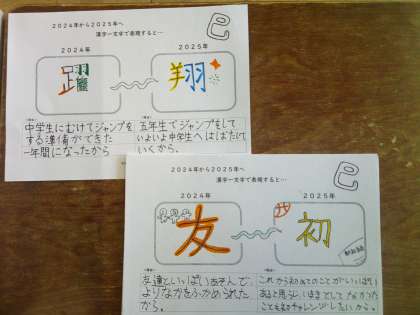 2024年から2025年へ
漢字一文字で表現すると…
2024年
2025年
躍
翔
中学生にむけてジャンプを
する準備ができた
一年間になったから
五年生でジャンプをして
いよいよ中学生へはばたいて
いくから。
2024年から2025年へ
漢字一文字で表現すると…
2024年
2025年
友
初
友達といっぱいあそんで、
よりなかをふかめられた
から。
これから初めてのことがいっぱい
あると思うし、